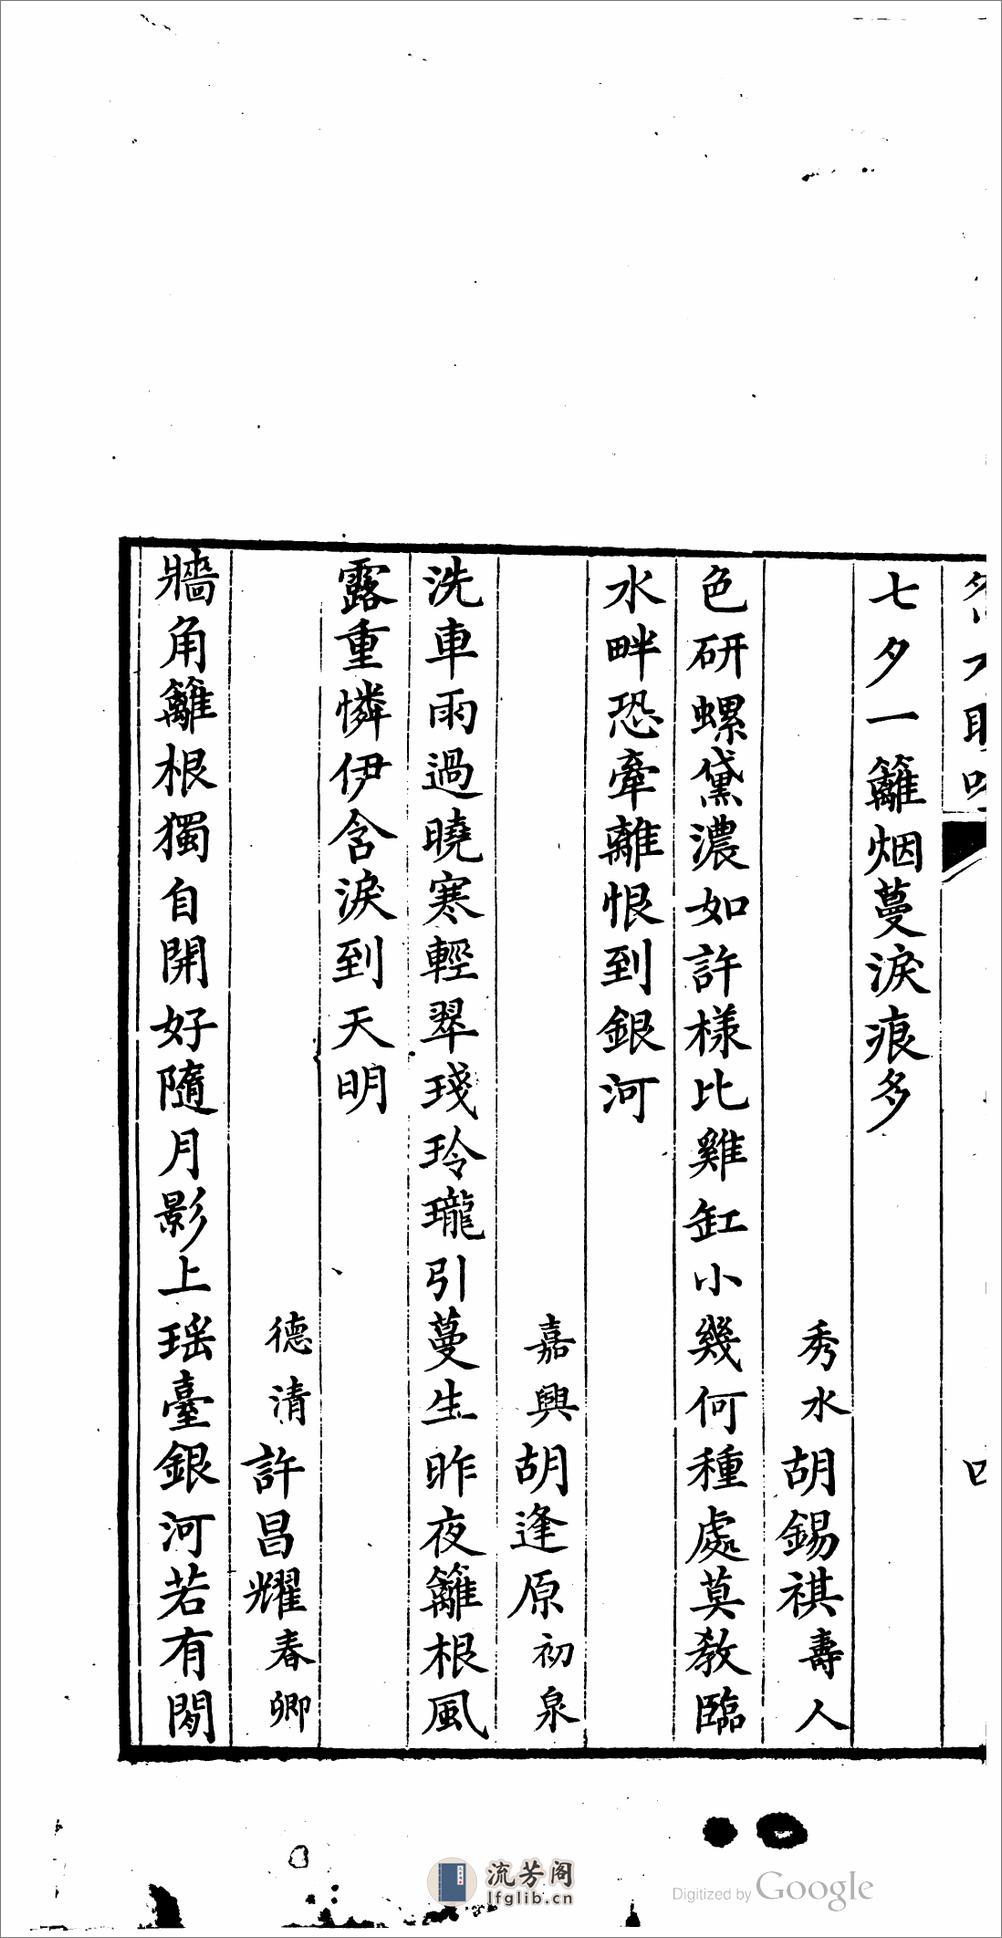 七夕一籬烟蔓淚痕多
秀水胡錫祺壽人
色研螺黛濃如許樣比雞缸小幾何種處莫教臨
水畔恐牽離恨到銀河
嘉興胡逢原初泉
洗車雨過曉寒輕翠琖玲瓏引蔓生昨夜籬根風
露重憐伊含淚到天明
德清許昌耀春卿
牆角籬根獨自開好隨月影上瑶臺銀河若有閒
流芳阁
lfglib.cn
Digitized by Google